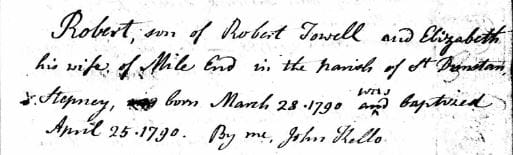 Robert, son of Robert Towell and Elizabeth
his wife, of Mile End in the parish of St Dunstan
Stepney, born March 28. 1790 and was baptized
April 25. 1790. By me, John Kello.